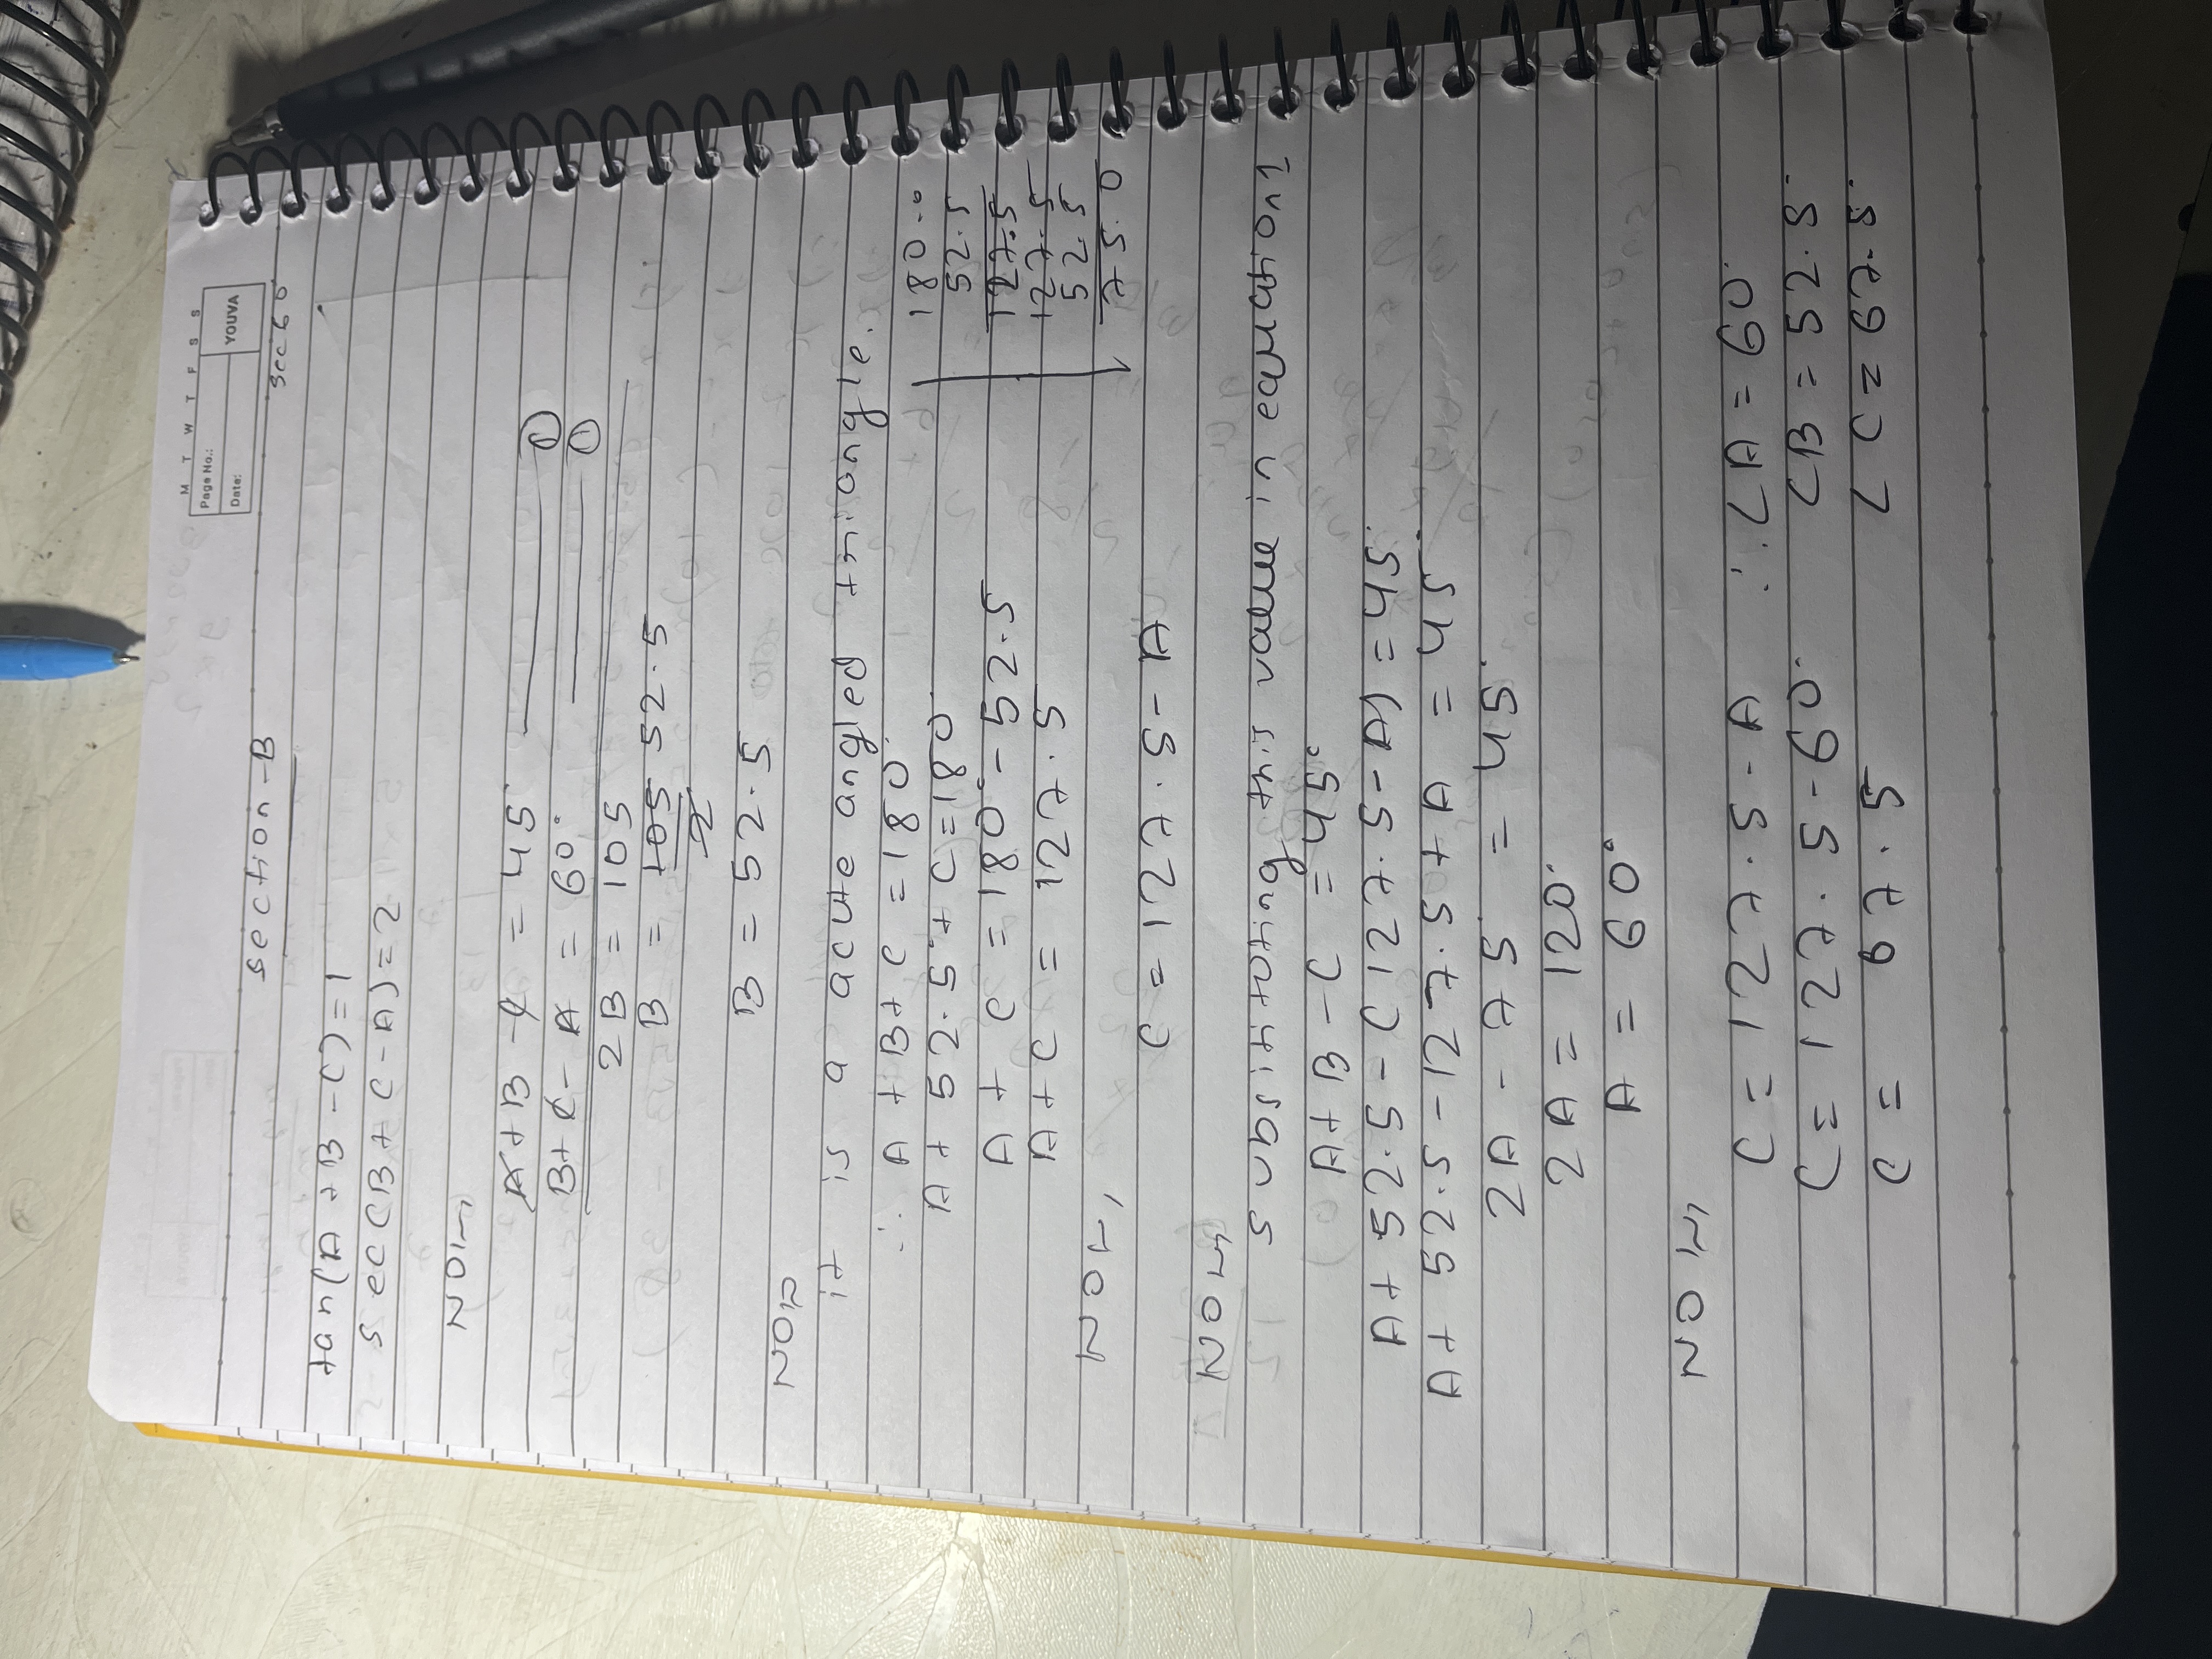 M T W T F S S
Page No.:
Date:
YOUVA
section-B
sec 60
tan(A+B-C)=1
sec(B+C-A)=2
Now,
A+B-C = 45° ①
B+C-A = 60° ①
2B = 105
B = 105 52.5
2
B = 52.5
Now
it is a acute angled triangle.
∴ A+B+C = 180°
A+52.5°+C=180°
A+C = 180°-52.5
A+C = 127.5
180.0
52.5
127.5
127.5
52.5
75.0
Now,
C = 127.5-A
Now,
substituting this value in equation 1
A+B-C = 45°
A+52.5-(127.5-A) = 45°
A+52.5-127.5+A = 45°
2A-75 = 45°
2A = 120°
A = 60°
Now,
C = 127.5-A
C = 127.5-60°
C = 67.5
∴ ∠A = 60°
∠B = 52.5°
∠C = 67.5°